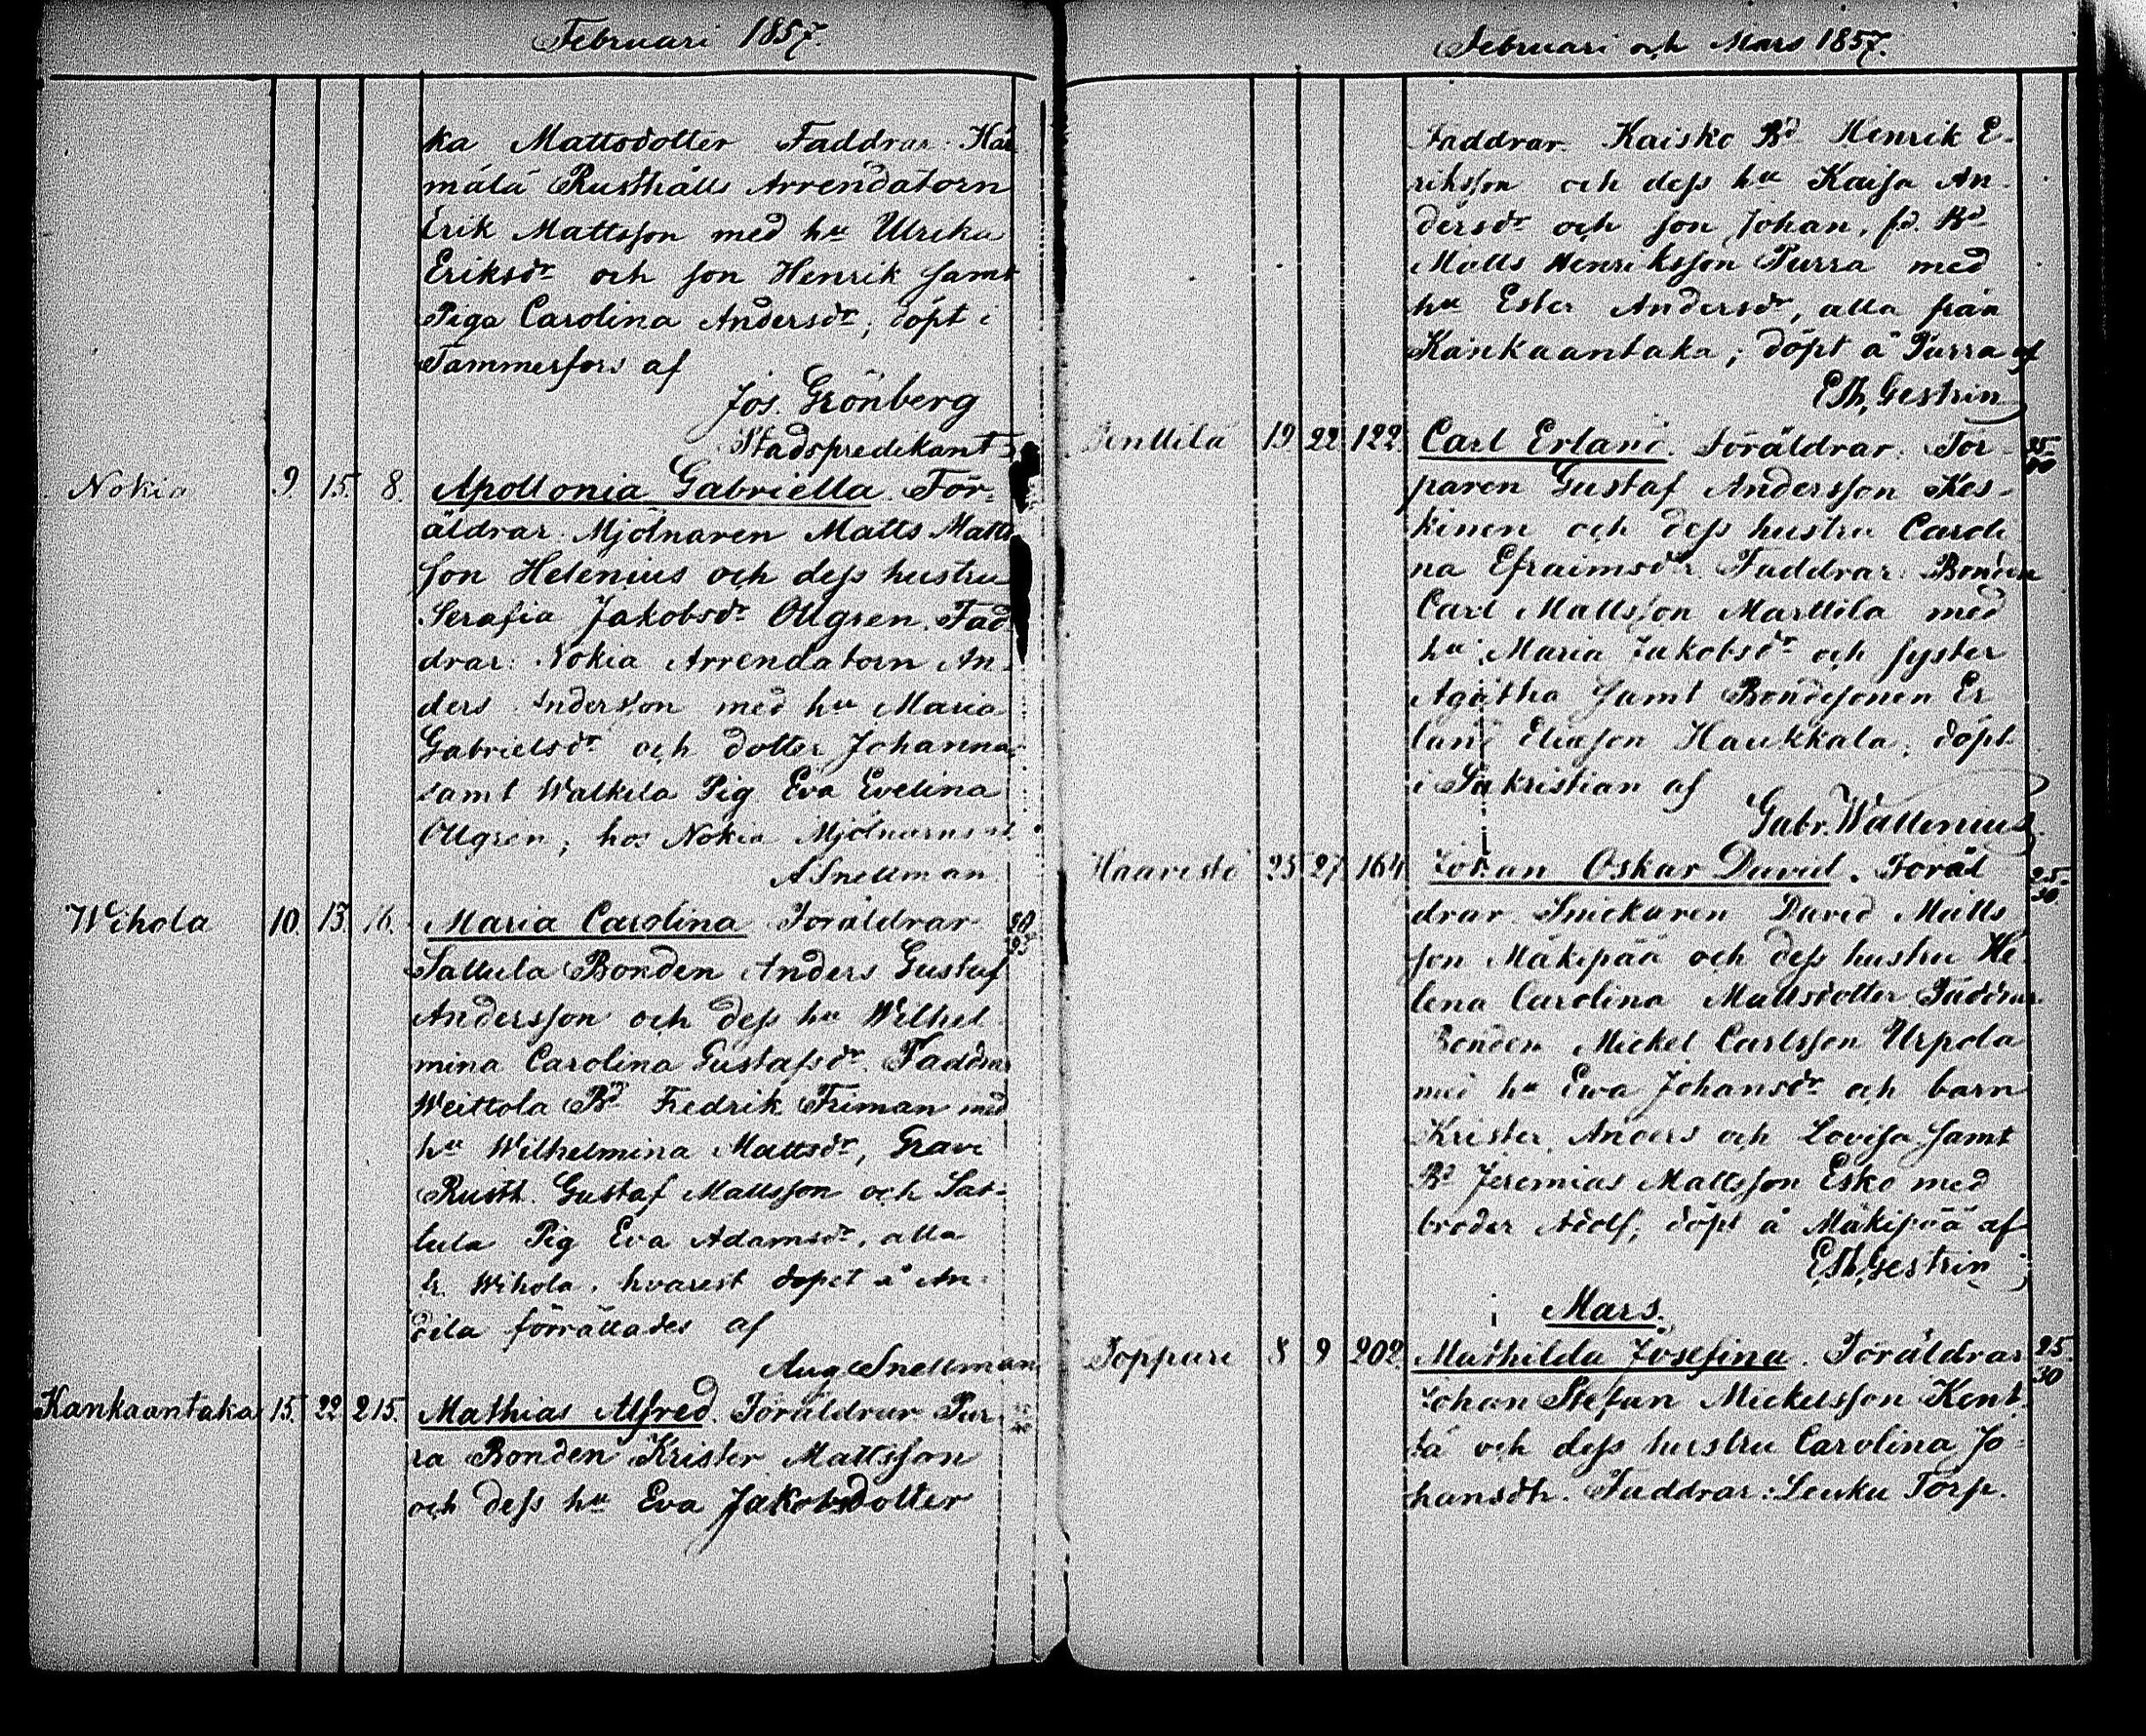 Februari 1857.
ka Mattsdotter Faddrar. Här-
mälä Rusthålls Arrendatorn
Erik Mattsson med hu Ulrika
Eriksdr och son Henrik samt
Piga Carolina Andersdr; döpt i
Tammerfors af
Jos. Grönberg
Stadspredikant
Nokia 9. 15. 8. Apollonia Gabriella. För-
äldrar. Mjölnaren Matts Matts
son Helenius och dess hustru
Serafia Jakobsdr Ollgren. Fad-
drar: Nokia Arrendatorn An-
ders Andersson med hu Maria
Gabrielsdr och dotter Johanna
samt Walkila Pig. Eva Evelina
Ollgren; hos Nokia Mjölnarns af
A Snellman
Wihola 10. 13. 16. Maria Carolina Föräldrar
Sallula Bonden Anders Gustaf
Andersson och dess hu Wilhel
mina Carolina Gustafsdr. Faddrar
Weittola Bd Fredrik Friman med
hu Wilhelmina Mattsdr,
Rusth. Gustaf Mattsson och Sal-
lula Pig Eva Adamsdr, alla
fr. Wihola, hvarest dopet å An-
dila förrättades af
Aug Snellman
Kankaantaka 15. 22 215. Mathias Alfred. Föräldrar Pur-
ra Bonden Krister Mattsson
och dess hu Eva Jakobsdotter
Februari och Mars 1857.
Faddrar. Kaisko Bd Henrik E-
riksson och dess hu Kaisa An-
dersdr och son Johan, fd. Bd
Matts Henriksson Purra med
hu Ester Andersdr, alla från
Kankaantaka; döpt å Purra af
E Th, Gestrin
Penttilä 19. 22. 122. Carl Erland. Föräldrar: Tor- 25-30
paren Gustaf Andersson Kes-
kinen och dess hustru Caroli
na Efraimsdr. Faddrar: Bonden
Carl Mattsson Marttila med
hu Maria Jakobsdr och syster
Agatha samt Bondesonen Er
land Eliasson Haukkala; döpt
i Sakristian af
Gabr. Wallenius
Haavisto 25 27. 164. Johan Oskar David. Föräl 25-30
drar. Snickaren David Matts
son Mäkipää och dess hustru He-
lena Carolina Mattsdotter Faddrar
Bonden Mickel Carlsson Urpola
med hu Ewa Johansdr och barn
Krister, Anders och Lovisa, samt
Bd Jeremias Mattsson Esko med
broder Adolf; döpt å Mäkipää af
E Th, Gestrin
Mars.
Soppari 8 9 202. Mathilda Josefina. Föräldrar 25-30
Johan Stefan Mickelsson Kent
tä och dess hustru Carolina Jo-
hansdr. Faddrar: Leuku Torp.